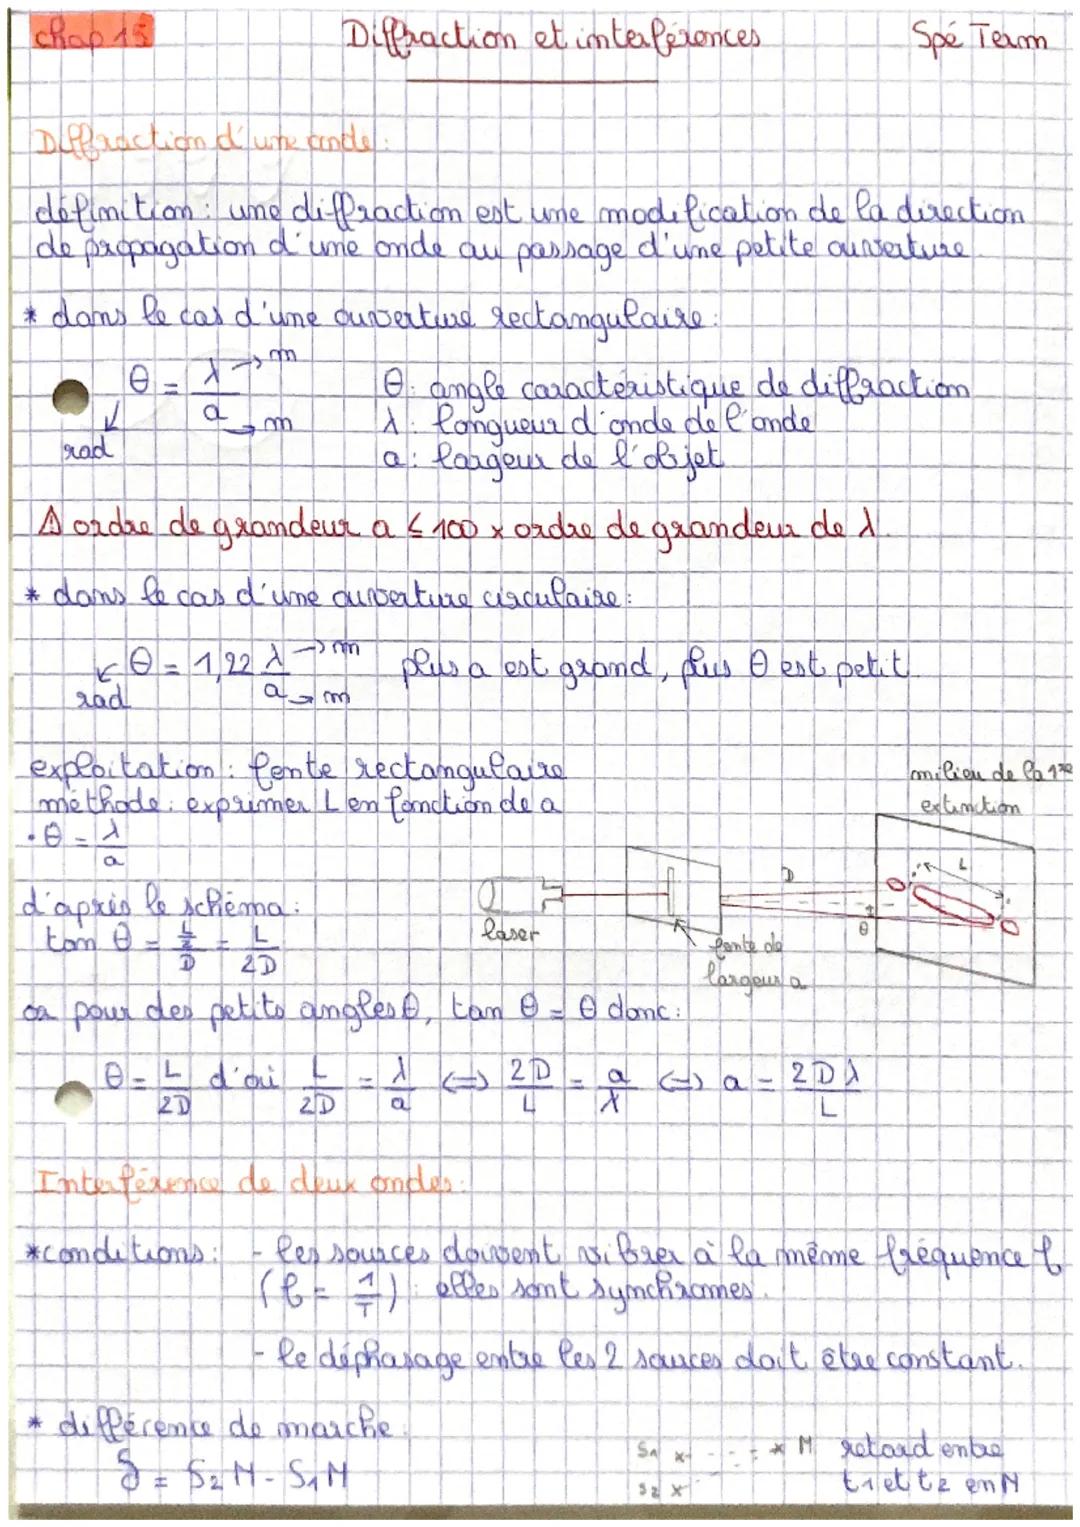 chap 15 Diffraction et interférences Spé Term
Diffraction d'une onde :
définition : une diffraction est une modification de la direction
de propagation d'une onde au passage d'une petite ouverture.
* dans le cas d'une ouverture rectangulaire :
θ = λ/a → m → m rad
θ : angle caractéristique de diffraction
λ : longueur d'onde de l'onde
a : largeur de l'objet
⚠ ordre de grandeur a ≤ 100 x ordre de grandeur de λ.
* dans le cas d'une ouverture circulaire :
θ = 1,22 λ/a → m → m rad plus a est grand, plus θ est petit.
exploitation : fente rectangulaire
méthode : exprimer L en fonction de a
• θ = λ/a
milieu de la 1re
extinction
L
D
θ
laser
fente de
largeur a
d'après le schéma :
tan θ = (L/2)/D = L/2D
car pour des petits angles θ, tan θ = θ donc :
θ = L/2D d'où L/2D = λ/a ⟺ 2D/L = a/λ ⟺ a = 2Dλ/L
Interférence de deux ondes :
* conditions : - les sources doivent vibrer à la même fréquence f
(f = 1/T) : elles sont synchrones.
- le déphasage entre les 2 sources doit être constant.
* différence de marche
δ = S2M - S1M
S1 x - - - - x M
S2 x
retard entre
t1 et t2 en M